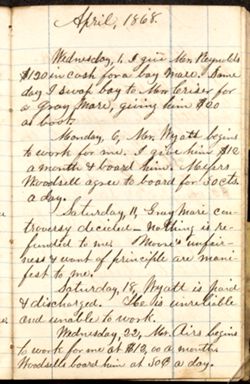 April, 1868.
Wednesday, 1, I give Mr. Reynolds
$120 in cash for a bay mare. Same
day I swap bay to Mr. Criser for
a gray mare, giving him $20
as boot.
Monday, 6, Mr. Wyatt begins
to work for me. I give him $12
a month & board him. Meyers
Woodsell agree to board for 30 cts.
a day.
Saturday, 11, Gray Mare con-
troversy decided — Nothing is re-
funded to me. Moore's unfair-
ness & want of principle are mani-
fest to me.
Saturday, 18, Wyatt is paid
& discharged. He is unreliable
and unable to work.
Wednesday, 22, Mr. Airs begins
to work for me at $13,00 a month
Woodsells board him at 30¢ a day.